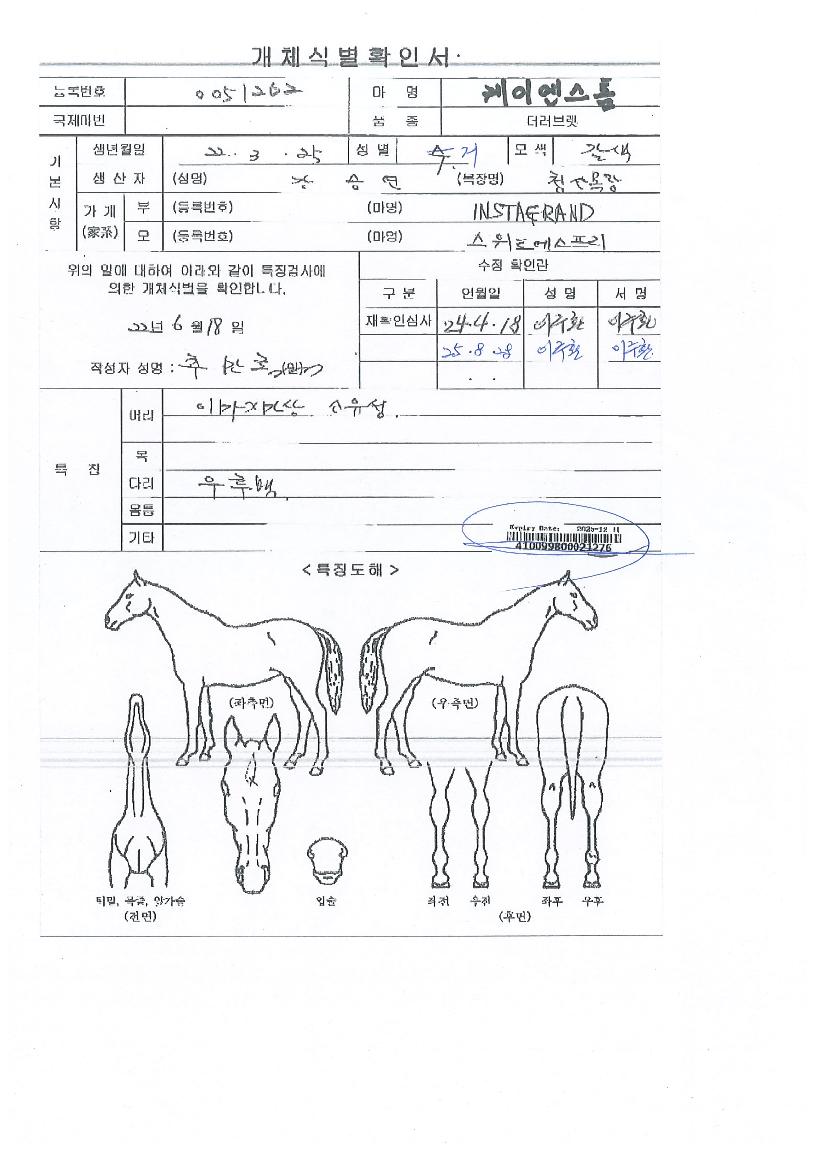 개체식별확인서
등록번호 0051262 마 명 케이엔스톰
국제마번 품 종 더러브렛
기본사항
생년월일 22. 3 . 25 성별 수 거 모색 갈색
생 산 자 (성명) 장 승 연 (목장명)
가계 (家系) 부 (등록번호) (마명) INSTAGRAND
모 (등록번호) (마명) 스위트에스프리
위의 말에 대하여 아래와 같이 특징검사에
의한 개체식별을 확인합니다.
22년 6 월 18 일
작성자 성명 :
수정 확인란
구 분 연월일 성 명 서 명
재확인심사 24.4.18 이주환 이주환
25.8.28 이주환 이주환
. .
특 징
머리 이마자연상 선유성.
목
다리 우후백.
몸통
기타
Expiry Date: 2025-12-11
410099800021276
<특징도해>
(좌측면) (우측면)
턱밑, 목줄, 앞가슴 입술 좌전 우전 좌후 우후
(전면) (후면)